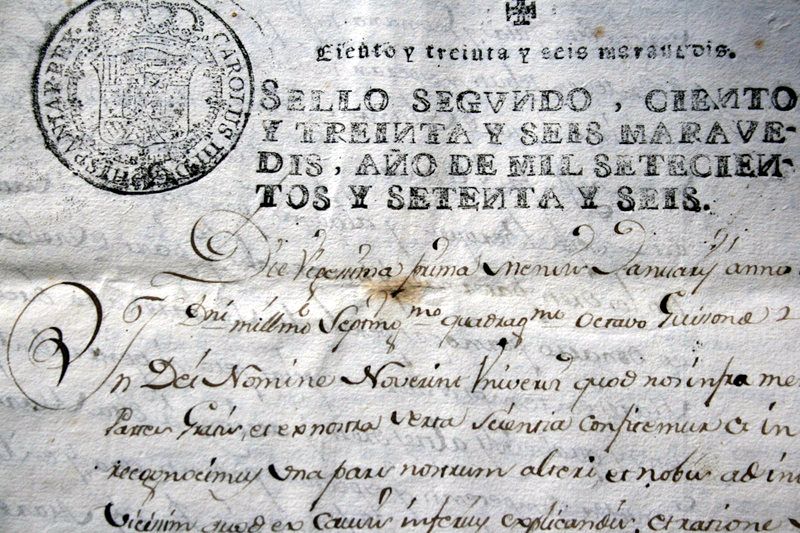 CAROLUS III D G HISPANIAR REX
Ciento y treinta y seis maravedis.
SELLO SEGVNDO, CIENTO
Y TREINTA Y SEIS MARAVE-
DIS, AÑO DE MIL SETECIEN-
TOS Y SETENTA Y SEIS.
Die Vigesima prima Mensis Januarij anno
Dñi millmo Septingmo quadragmo octavo Guissonæ
In Dei Nomine Noverint Universi quod nos infra me
Partes Gratis, et ex nostra certa scientia confitemur et in
recognocimus una pars nostrum alteri, et nobis ad in
vicem quod ex causis inferius explicandis, et ratione